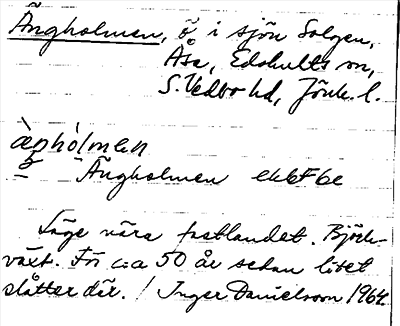 Ängholmen, ö i sjön Solgen,
Åsa, Edshults sn,
S. Vedbo hd, Jönk. l.
æŋhòlmen
ö Ängholmen ekbl 6e
Låge nära fastlandet. Björk-
växt. För c:a 50 år sedan litet
slåtter där. / Inger Danielsson 1964.